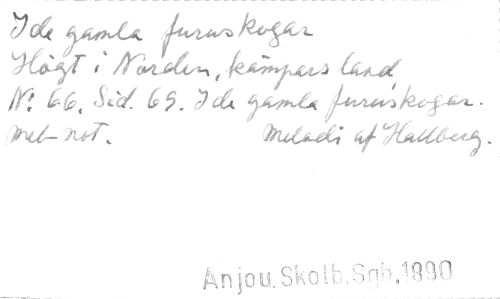 I de gamla furuskogar
Högt i Norden, kämpars land
N:o 66. Sid. 69. I de gamla furuskogar.
mel-not. Melodi af Hallberg.
Anjou. Skolb. Sgb. 1890